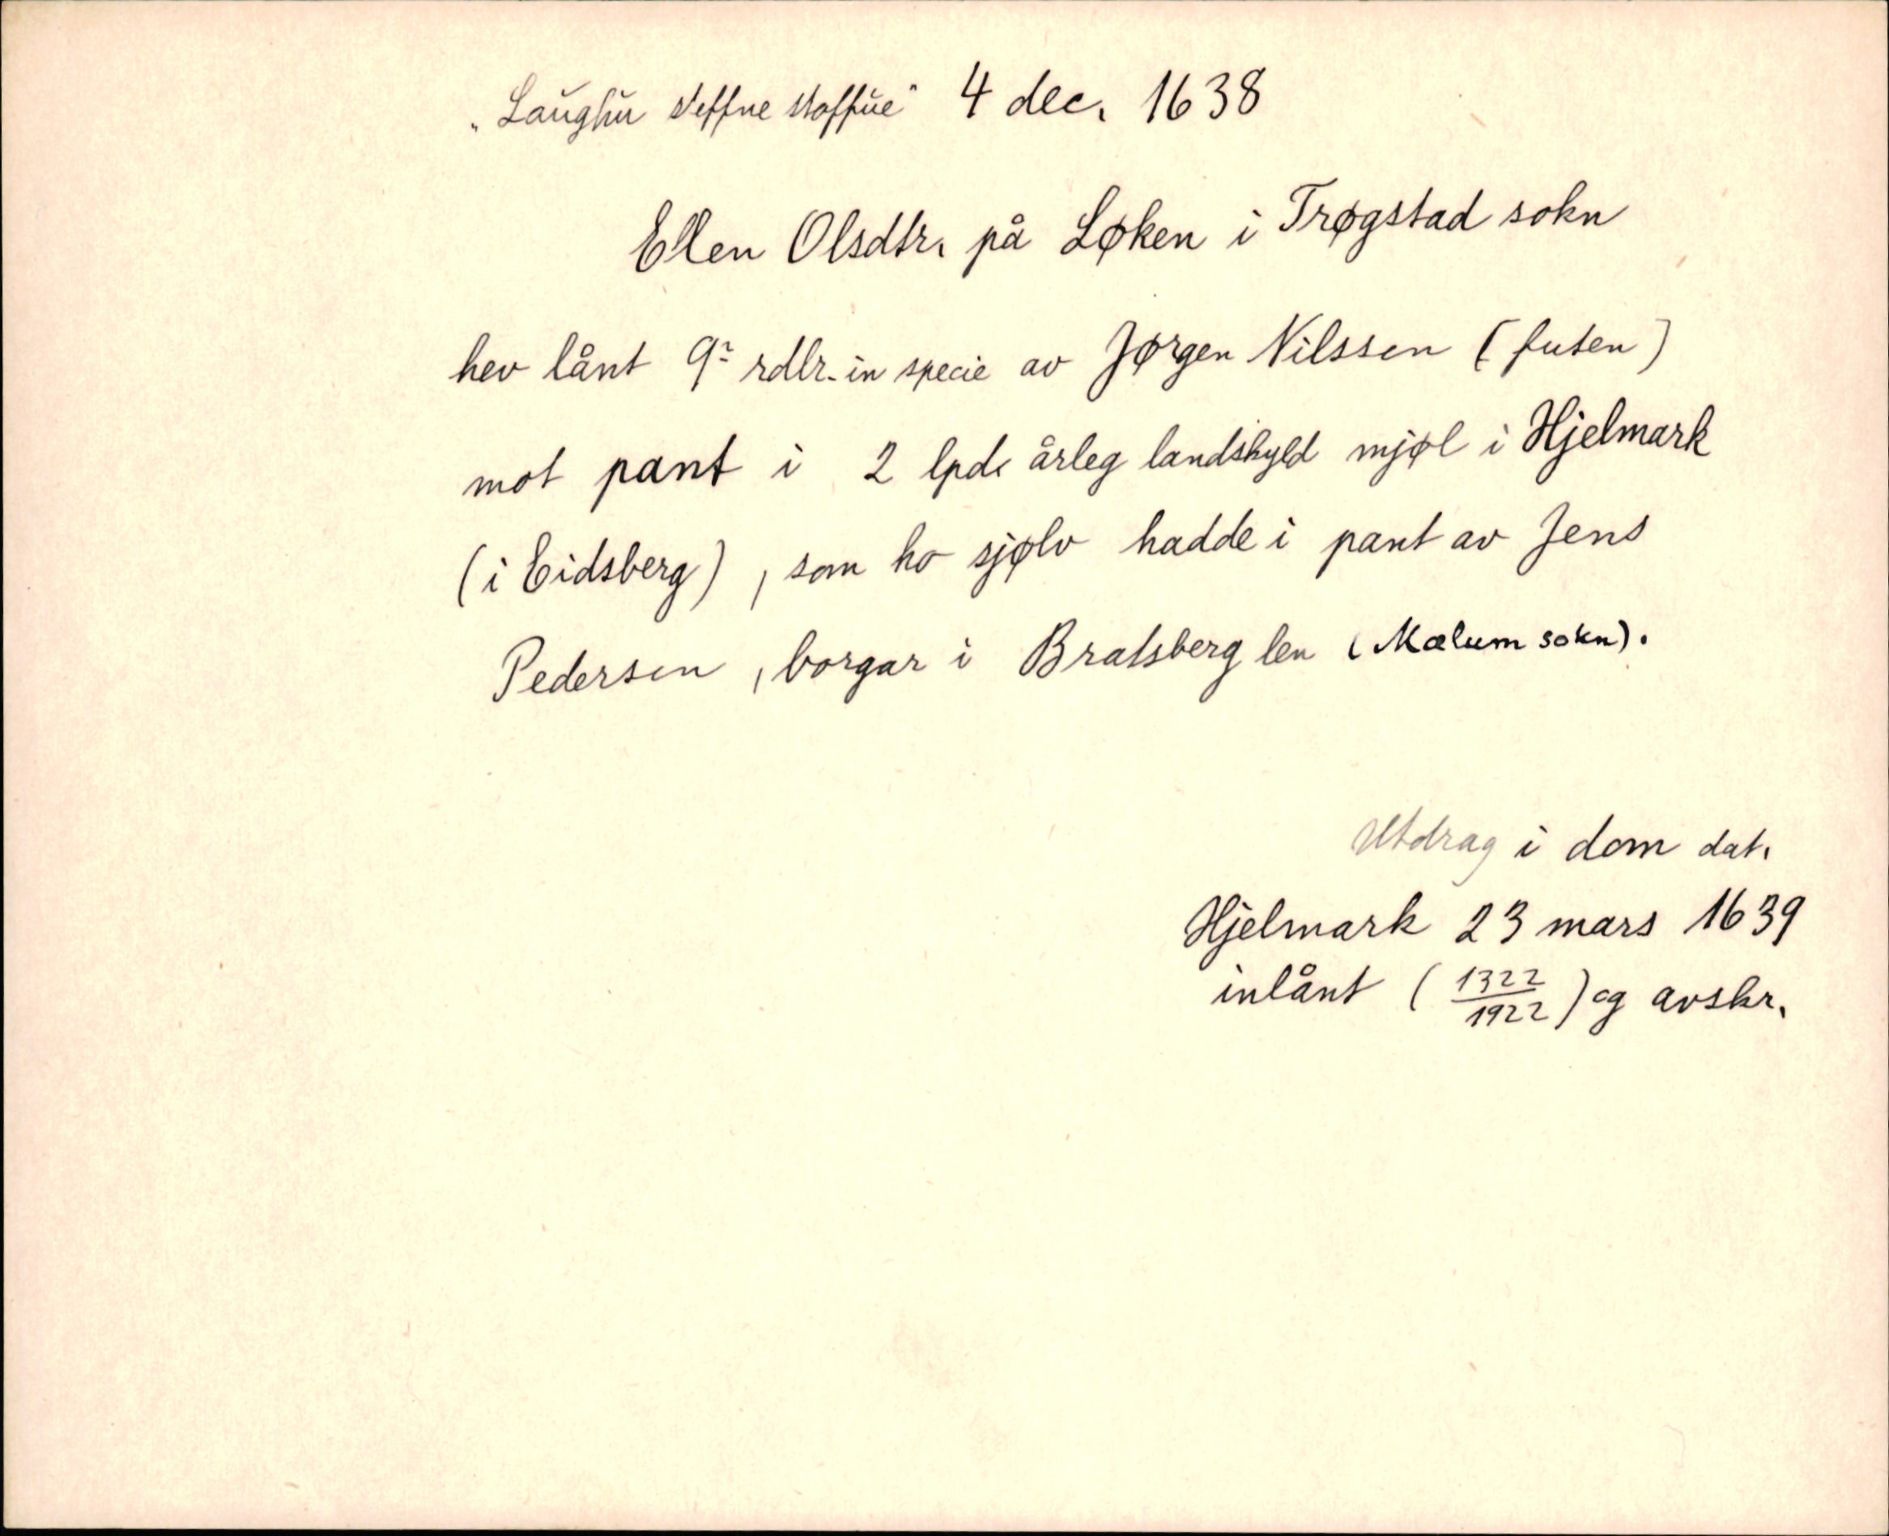 4 dec. 1638
Ellen Olsdtr. på Løken i Trøgstad sokn
hev lånt 9 rdlr. in specie av Jørgen Nilssen (futen)
mot pant i 2 lpd. årleg landskyld mjøl i Hjelmark
(i Eidsberg), som ho sjølv hadde i pant av Jens
Pedersen, borgar i Bratsberg len (Mælum sokn).
Utdrag i dom dat.
Hjelmark 23 mars 1639
inlånt (1322/1922) og avskr.